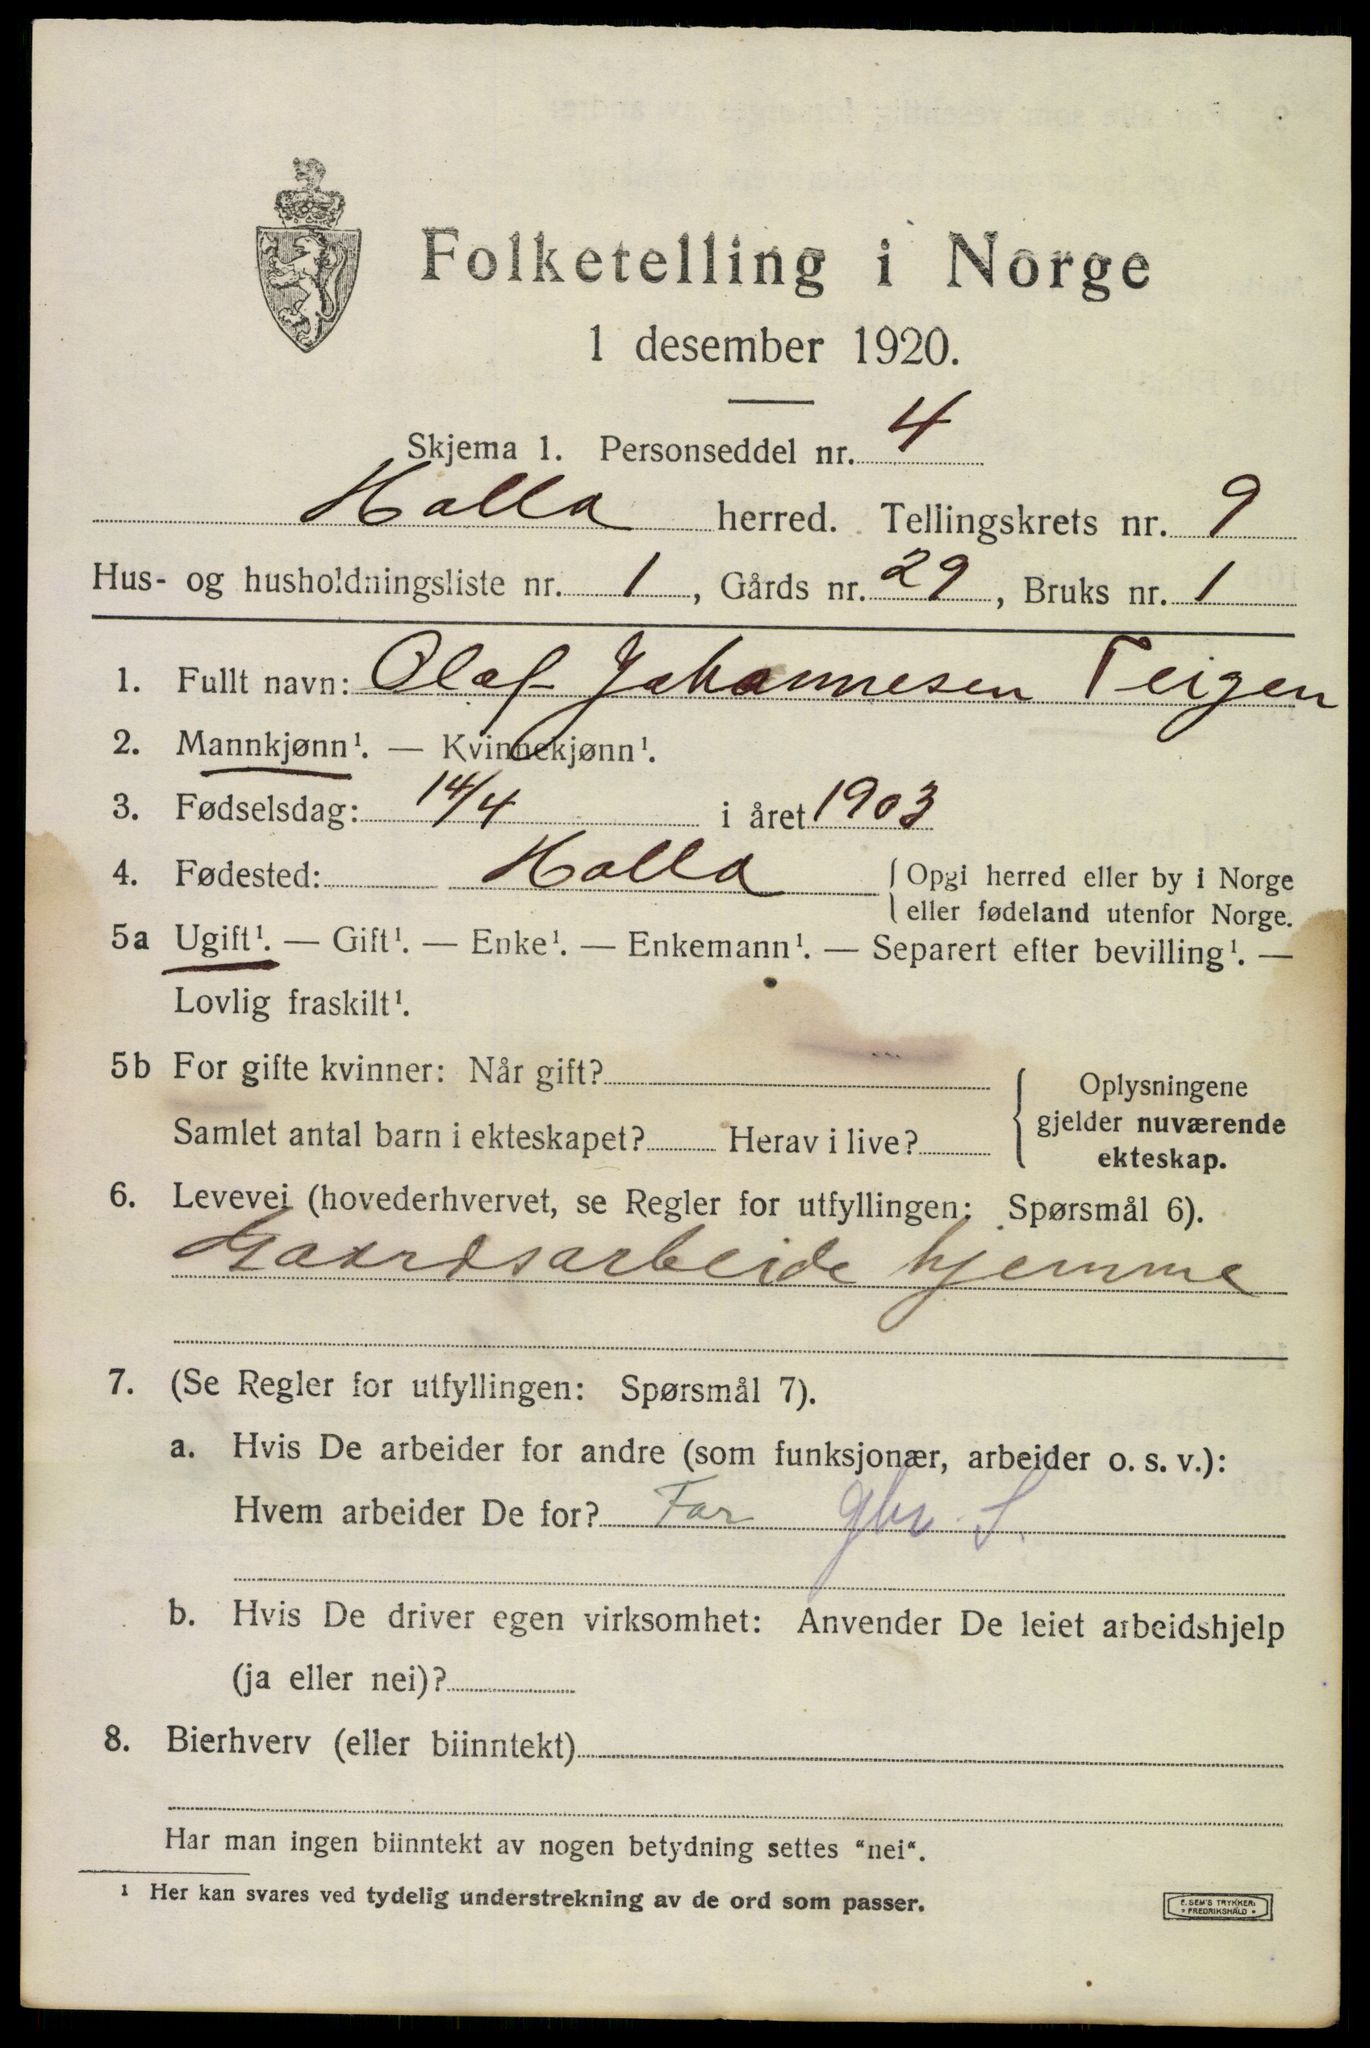 Folketelling i Norge
1 desember 1920.
Skjema 1. Personseddel nr. 4
Holla herred. Tellingskrets nr. 9
Hus- og husholdningsliste nr. 1, Gårds nr. 29, Bruks nr. 1
1. Fullt navn: Olaf Johannesen Teigen
2. Mannkjønn¹. — Kvinnekjønn¹.
3. Fødselsdag: 14/4 i året 1903
4. Fødested: Holla { Opgi herred eller by i Norge
eller fødeland utenfor Norge.
5a Ugift¹. — Gift¹. — Enke¹. — Enkemann¹. — Separert efter bevilling¹. —
Lovlig fraskilt¹.
5b For gifte kvinner: Når gift?
Samlet antal barn i ekteskapet? Herav i live?
{ Oplysningene
gjelder nuværende
ekteskap.
6. Levevei (hovederhvervet, se Regler for utfyllingen: Spørsmål 6).
Gaardsarbeide hjemme
7. (Se Regler for utfyllingen: Spørsmål 7).
a. Hvis De arbeider for andre (som funksjonær, arbeider o. s. v.):
Hvem arbeider De for? Far gbr. S.
b. Hvis De driver egen virksomhet: Anvender De leiet arbeidshjelp
(ja eller nei)?
8. Bierhverv (eller biinntekt)
Har man ingen biinntekt av nogen betydning settes "nei".
¹ Her kan svares ved tydelig understrekning av de ord som passer.
E. SEM'S TRYKKERI
* FREDRIKSHALD *